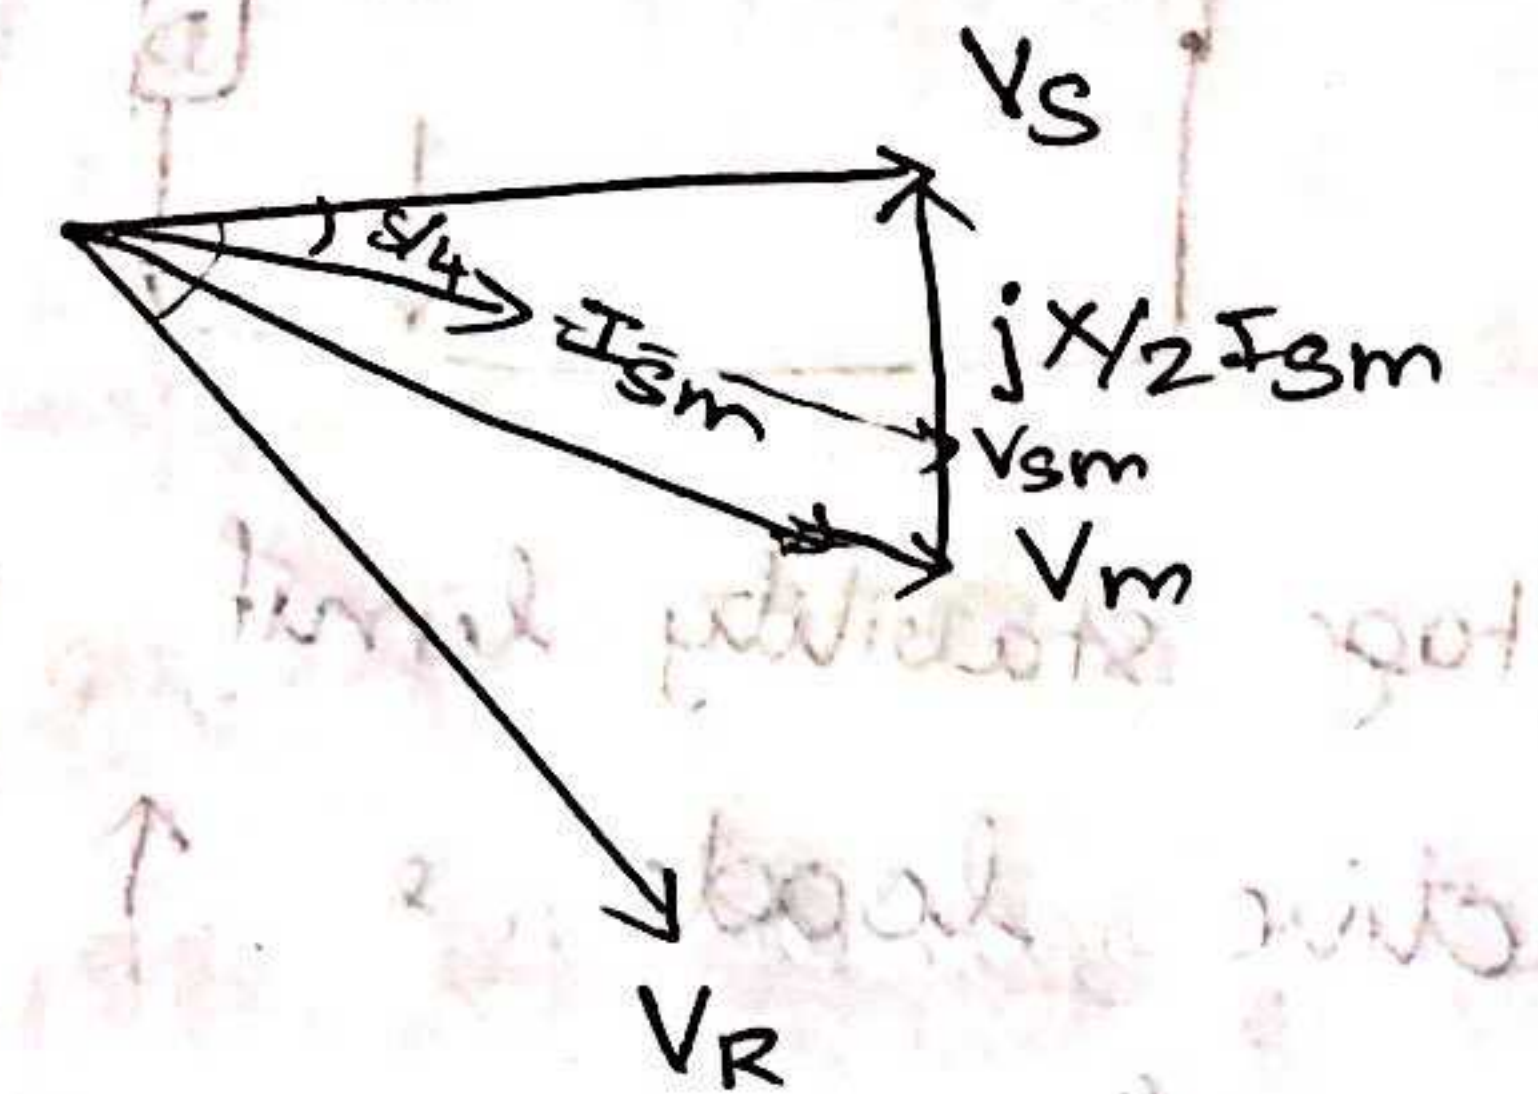 VS
S/4
ISm
jX/2 ISm
VSm
Vm
VR